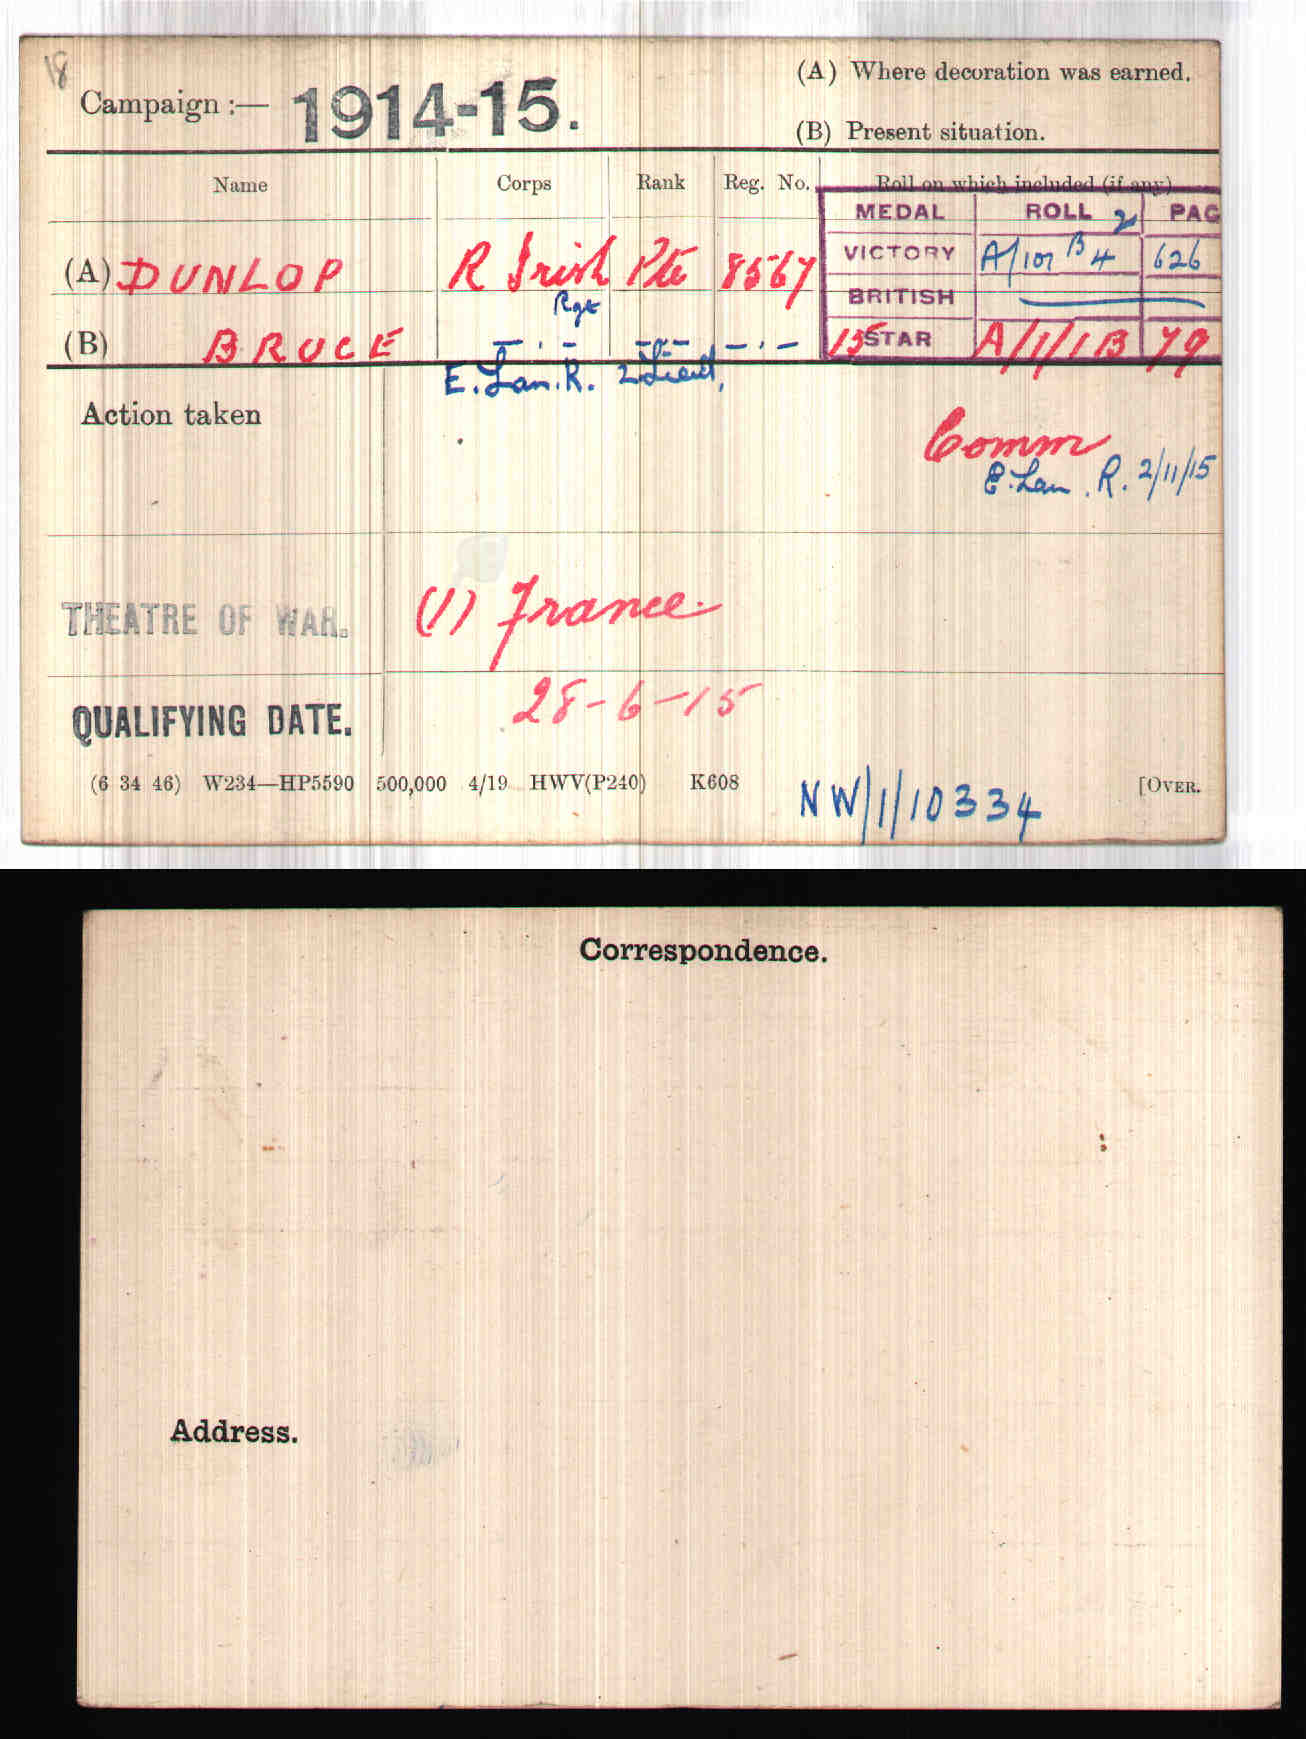 18
Campaign :— 1914-15.
(A) Where decoration was earned.
(B) Present situation.
Name Corps Rank Reg. No. Roll on which included (if any)
MEDAL ROLL PAG
VICTORY A/107 B 4 626
(A) DUNLOP R Irish Pte 8567
Rgt
BRITISH
(B) BRUCE — . — — — — . —
15 STAR A/1/1 B 79
E. Lan. R. 2 Lieut,
Action taken
Comm
E. Lan. R. 2/11/15
THEATRE OF WAR. (1) France.
QUALIFYING DATE. 28-6-15
(6 34 46) W234—HP5590 500,000 4/19 HWV(P240) K608
NW/1/10334
[OVER.
Correspondence.
Address.